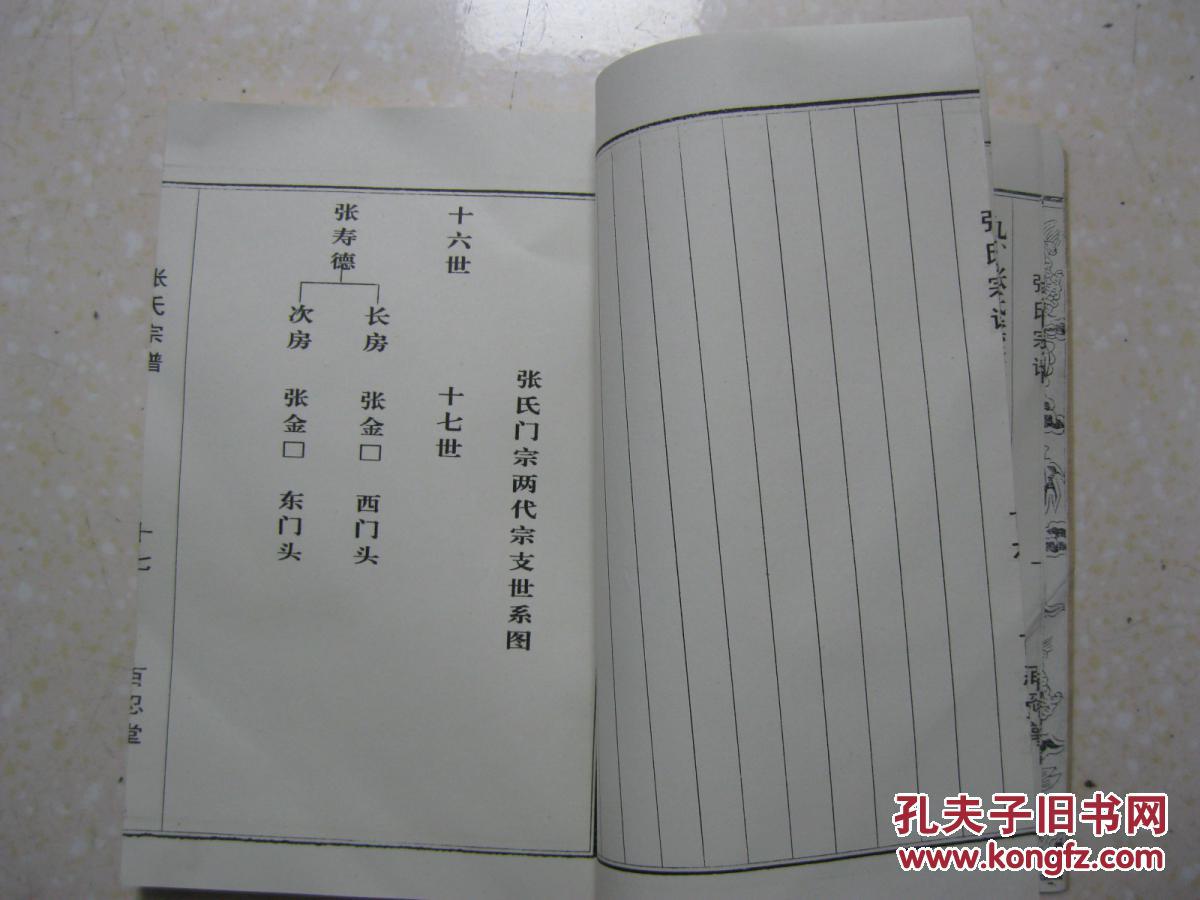 张氏门宗两代宗支世系图
十六世
十七世
张寿德
长房
张金□
西门头
次房
张金□
东门头
张氏宗谱
十七
百忍堂
孔夫子旧书网
www.kongfz.com